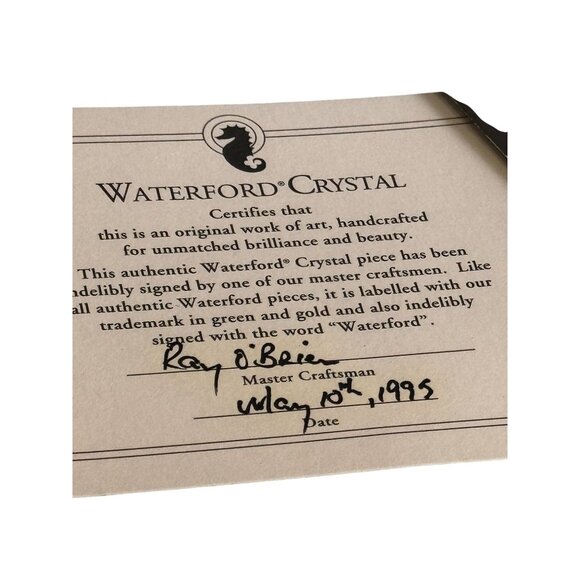 WATERFORD® CRYSTAL
Certifies that
this is an original work of art, handcrafted
for unmatched brilliance and beauty.
This authentic Waterford® Crystal piece has been
ndelibly signed by one of our master craftsmen. Like
all authentic Waterford pieces, it is labelled with our
trademark in green and gold and also indelibly
signed with the word "Waterford".
Ray O'Brien
Master Craftsman
May 10th, 1995
Date